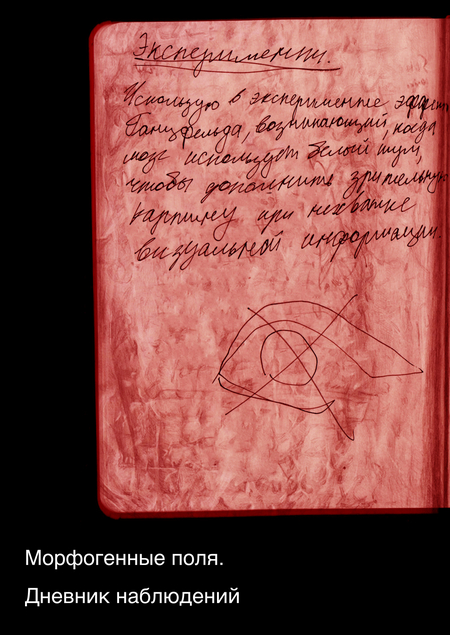 Эксперимент.
Использую в эксперименте эффект
Ганцфельда, возникающий, когда
мозг использует белый шум,
чтобы дополнить зрительную
картину при нехватке
визуальной информации
Морфогенные поля.
Дневник наблюдений